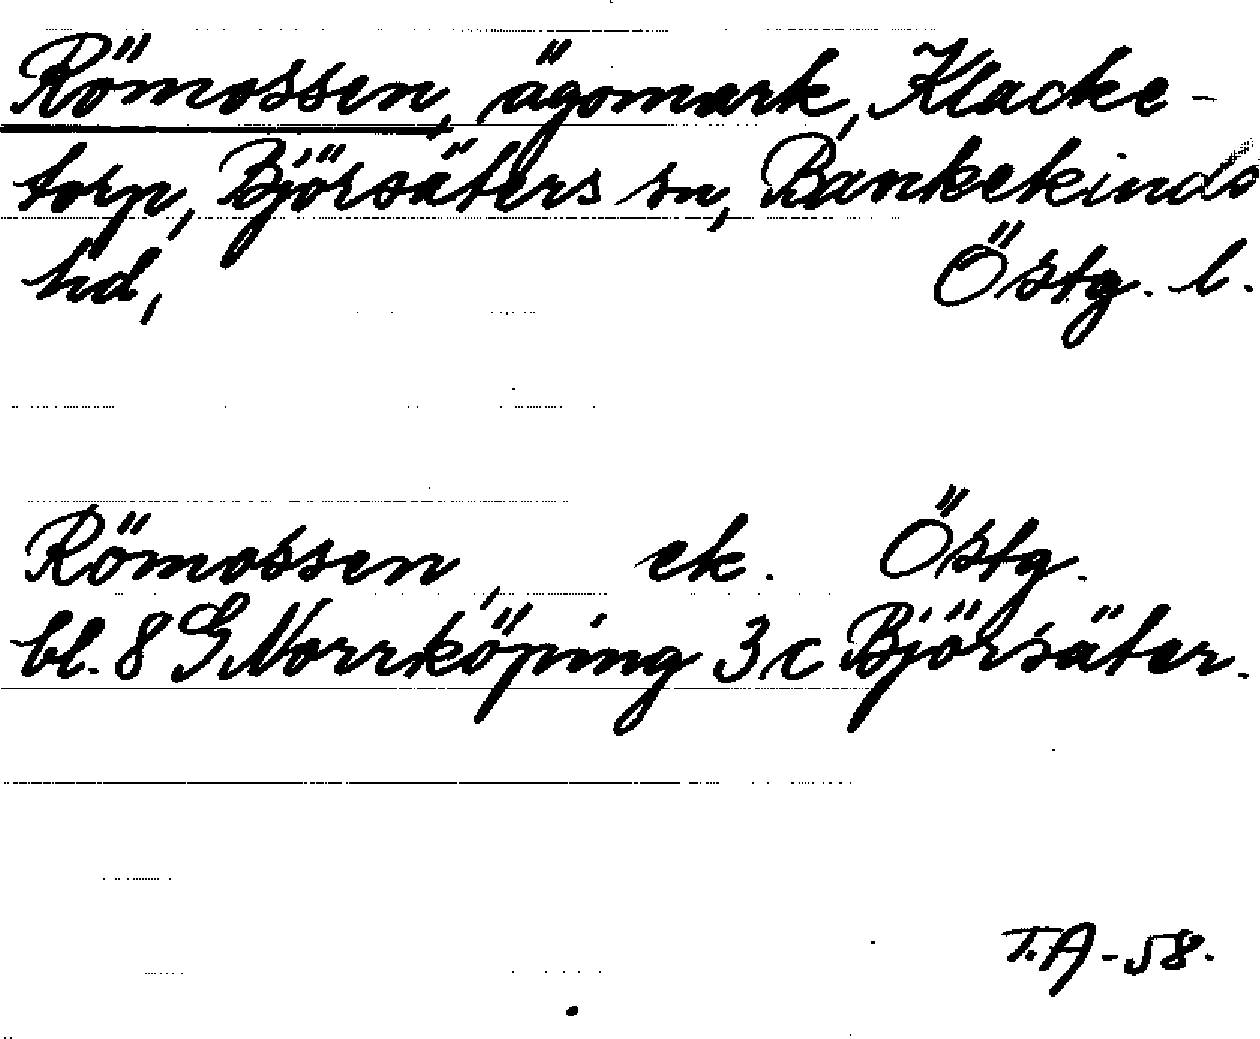 Römossen, ägomark, Klacke-
torp, Björsäters sn, Bankekinds
hd, Östg. l.
Römossen, ek. Östg.
bl. 8 G Norrköping 3 c Björsäter.
T.A-58.